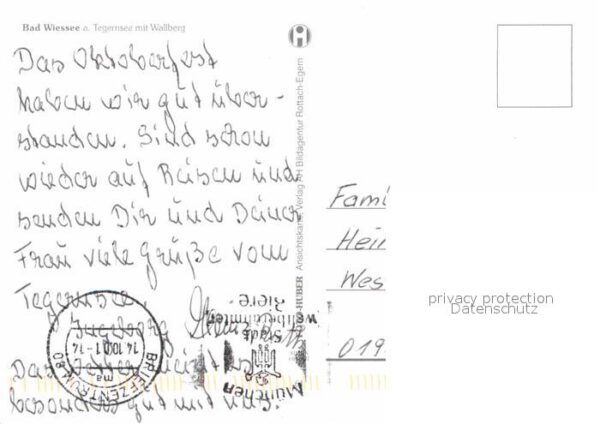 Bad Wiessee a. Tegernsee mit Wallberg
Das Oktoberfest
haben wir gut über-
standen. Sind schon
wieder auf Reisen und
senden Dir und Deiner
Frau viele Grüße vom
Tegernsee.
Ingeborg
Das
besonders gut mit uns.
Ansichtskarten Verlag AH Bildagentur Rottach-Egern
HUBER
BRIEFZENTRUM 80
14.10.01-14
ma
München
Stadt
weltberühmter
Biere
Fami
Hein
Wes
019
privacy protection
Datenschutz